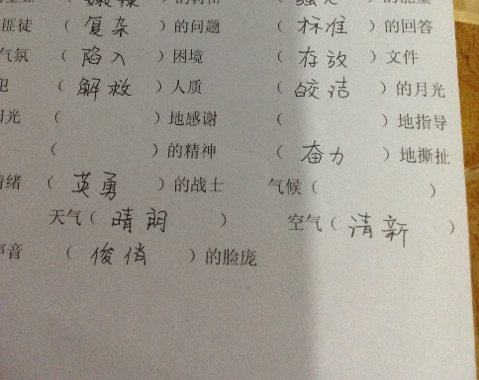 匪徒 （复杂）的问题 （标准）的回答
气氛 （陷入）困境 （存放）文件
犯 （解救）人质 （皎洁）的月光
阳光 （ ）地感谢 （ ）地指导
（ ）的精神 （奋力）地撕扯
情绪 （英勇）的战士 气候（ ）
天气（晴朗） 空气（清新）
声音 （俊俏）的脸庞